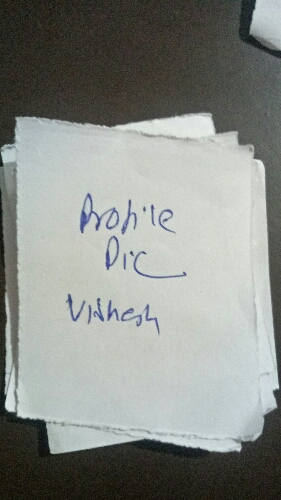 Profile
Pic
Vishesh